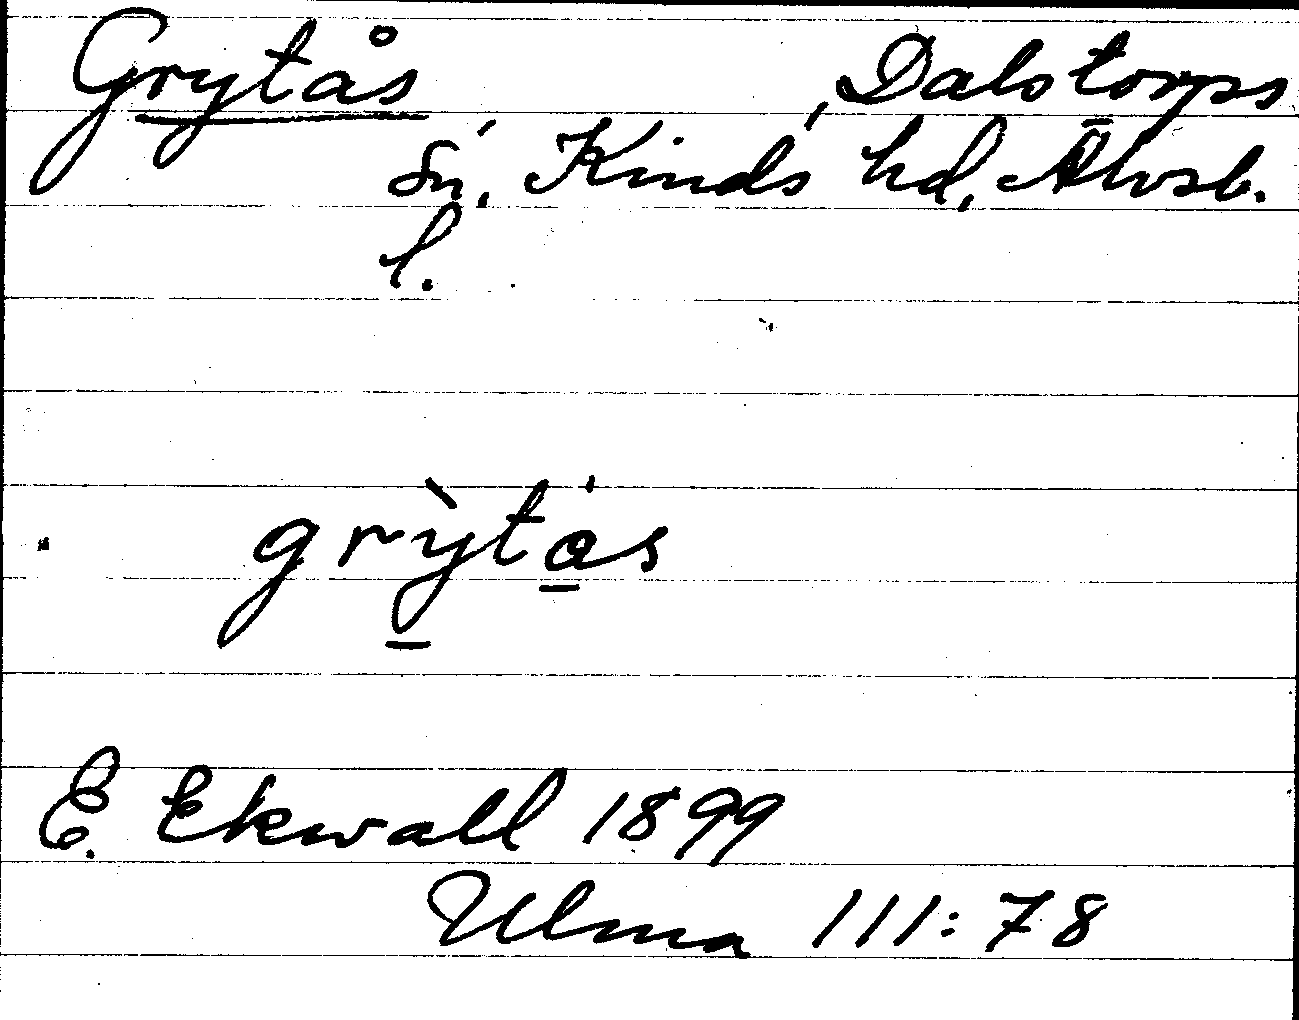 Grytås Dalstorps
sn, Kinds hd, Älvsb.
l.
grỳtås
E. Ekwall 1899
Ulma 111:78